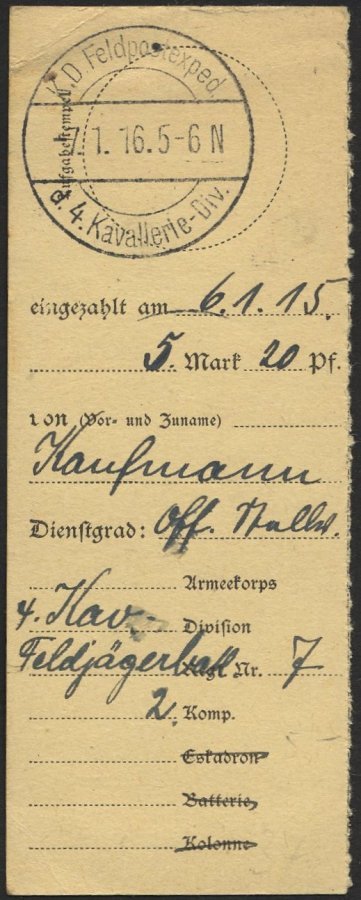 K.D. Feldpostexped.
Aufgabestempel
7.1.16.5-6 N
d. 4. Kavallerie-Div.
eingezahlt am 6.1.15.
5. Mark 20 Pf.
von (Vor- und Zuname)
Kaufmann
Dienstgrad: Off. Stellv.
Armeekorps
4. Kav. Division
Feldjägerbatl. Nr. 7
2. Komp.
Eskadron
Batterie,
Kolonne